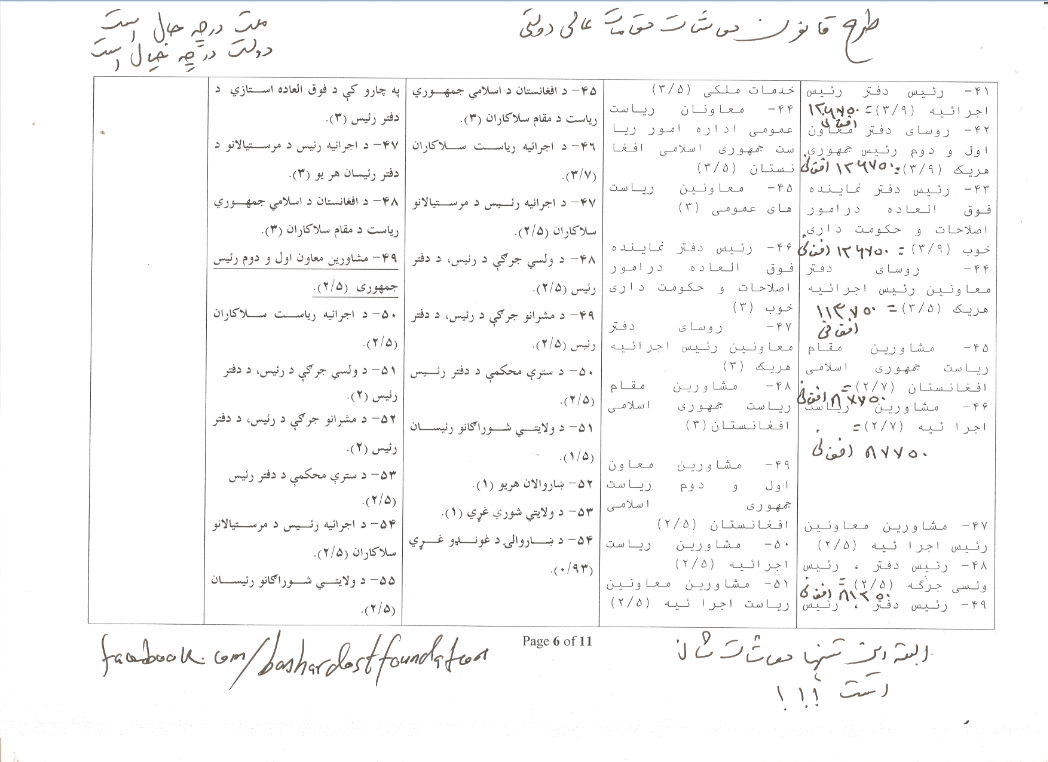 طرح قانون معاشات مقامات عالی دولتی
ملت در چه حال است
دولت در چه خیال است
۴۱- رئیس دفتر رئیس
اجرائیه (۳/۹) = ۱۲۶۷۵۰
افغانی
۴۲- روسای دفتر معاون
اول و دوم رئیس جمهوری
هریک (۳/۹) = ۱۲۶۷۵۰ افغانی
۴۳- رئیس دفتر نماینده
فوق العاده درامور
اصلاحات و حکومت داری
خوب (۳/۹) = ۱۲۶۷۵۰ افغانی
۴۴- روسای دفتر
معاونین رئیس اجرائیه
هریک (۳/۵) = ۱۱۳۷۵۰
افغانی
۴۵- مشاورین مقام
ریاست جمهوری اسلامی
افغانستان (۲/۷) = ۸۷۷۵۰ افغانی
۴۶- مشاورین ریاست
اجرا ئیه (۲/۷) =
۸۷۷۵۰ افغانی
۴۷- مشاورین معاونین
رئیس اجرا ئیه (۲/۵)
۴۸- رئیس دفتر ، رئیس
ولسی جرگه (۲/۵) = ۸۱۲۵۰ افغانی
۴۹- رئیس دفتر ، رئیس
خدمات ملکی (۳/۵)
۴۴- معاونان ریاست
عمومی اداره امور ریا
ست جمهوری اسلامی افغا
نستان (۳/۵)
۴۵- معاونین ریاست
های عمومی (۳)
۴۶- رئیس دفتر نماینده
فوق العاده درامور
اصلاحات و حکومت داری
خوب (۳)
۴۷- روسای دفتر
معاونین رئیس اجرائیه
هریک (۳)
۴۸- مشاورین مقام
ریاست جمهوری اسلامی
افغانستان(۳)
۴۹- مشاورین معاون
اول و دوم ریاست
جمهوری اسلامی
افغانستان (۲/۵)
۵۰- مشاورین ریاست
اجرائیه (۲/۵)
۵۱- مشاورین معاونین
ریاست اجرا ئیه (۲/۵)
۴۵- د افغانستان د اسلامي جمهوري
ریاست د مقام سلاکاران (۳).
۴۶- د اجرائیه ریاست سلاکاران
(۳/۷).
۴۷- د اجرائیه رئیس د مرستیالانو
سلاکاران (۲/۵).
۴۸- د ولسي جرګې د رئیس، د دفتر
رئیس (۲/۵).
۴۹- د مشرانو جرګې د رئیس، د دفتر
رئیس (۲/۵).
۵۰- د سترې محکمې د دفتر رئیس
(۲/۵).
۵۱- د ولایتي شوراګانو رئیسان
(۱/۵).
۵۲- ښاروالان هریو (۱).
۵۳- د ولایتي شورې غړي (۱).
۵۴- د ښاروالۍ د غونډو غړي
(۰/۹۳).
په چارو کې د فوق العاده استازي د
دفتر رئیس (۳).
۴۷- د اجرائیه رئیس د مرستیالانو د
دفتر رئیسان هر یو (۳).
۴۸- د افغانستان د اسلامي جمهوري
ریاست د مقام سلاکاران (۳).
۴۹- مشاورین معاون اول و دوم رئیس
جمهوری (۲/۵).
۵۰- د اجرائیه ریاست سلاکاران
(۲/۵).
۵۱- د ولسي جرګې د رئیس، د دفتر
رئیس (۲).
۵۲- د مشرانو جرګې د رئیس، د دفتر
رئیس (۲).
۵۳- د سترې محکمې د دفتر رئیس
(۲/۵).
۵۴- د اجرائیه رئیس د مرستیالانو
سلاکاران (۲/۵).
۵۵- د ولایتي شوراګانو رئیسان
(۲/۵).
Page 6 of 11
البته این تنها معاشات شان
است ؟!!
facebook.com/bashardostfoundation